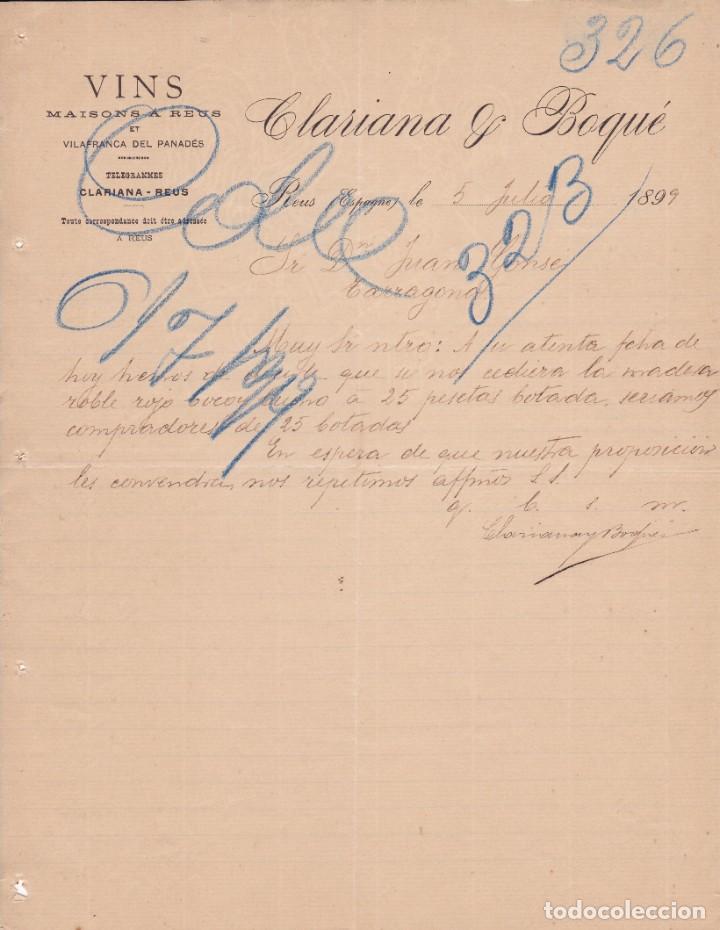 326
VINS
MAISONS À REUS
ET
VILAFRANCA DEL PANADÉS
TELEGRAMMES
CLARIANA - REUS
Toute correspondance doit être adressée
A REUS
Clariana & Boqué
Reus (Espagne) le 5 Julio 1899
323
6/7/99
Sr Dn Juan
Tarragona
Muy Sr ntro: A su atenta fcha de
hoy hemos de que si nos cediera la madera
roble rojo bocoy bueno à 25 pesetas botada, seriamos
compradores de 25 botadas
En espera de que nuestra proposicion
les convendra, nos repetimos affmos S. S.
q. b. s. m.
Clariana y Boqué
todocoleccion